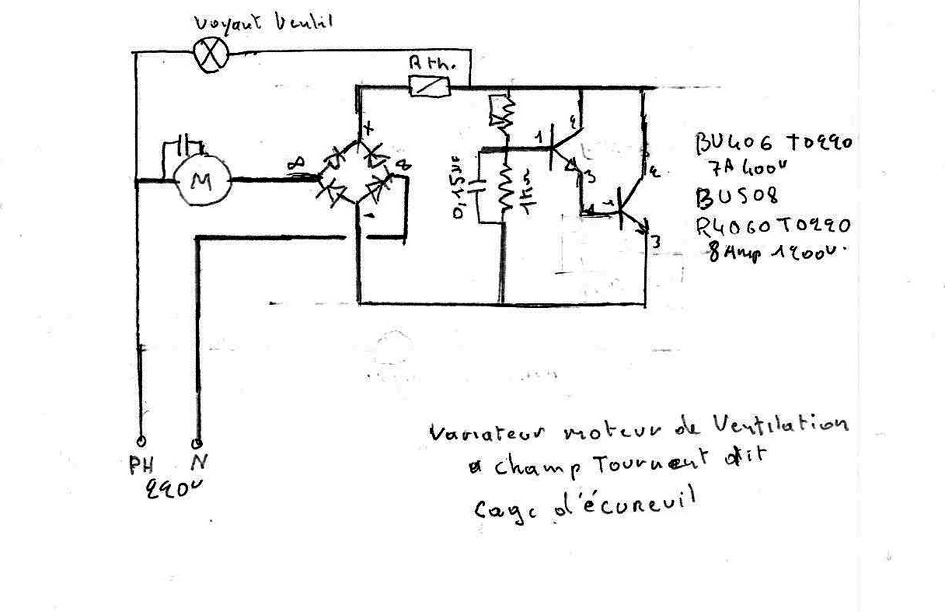 Voyant Ventil
R th.
+
M
1
2
3
-
0,15µF
1kΩ
1
2
3
BU406 TO220
7A 400V
BU508
R4060 TO220
8 Amp 1200V.
PH N
220V
Variateur moteur de Ventilation
a champ Tournant dit
cage d'écureuil